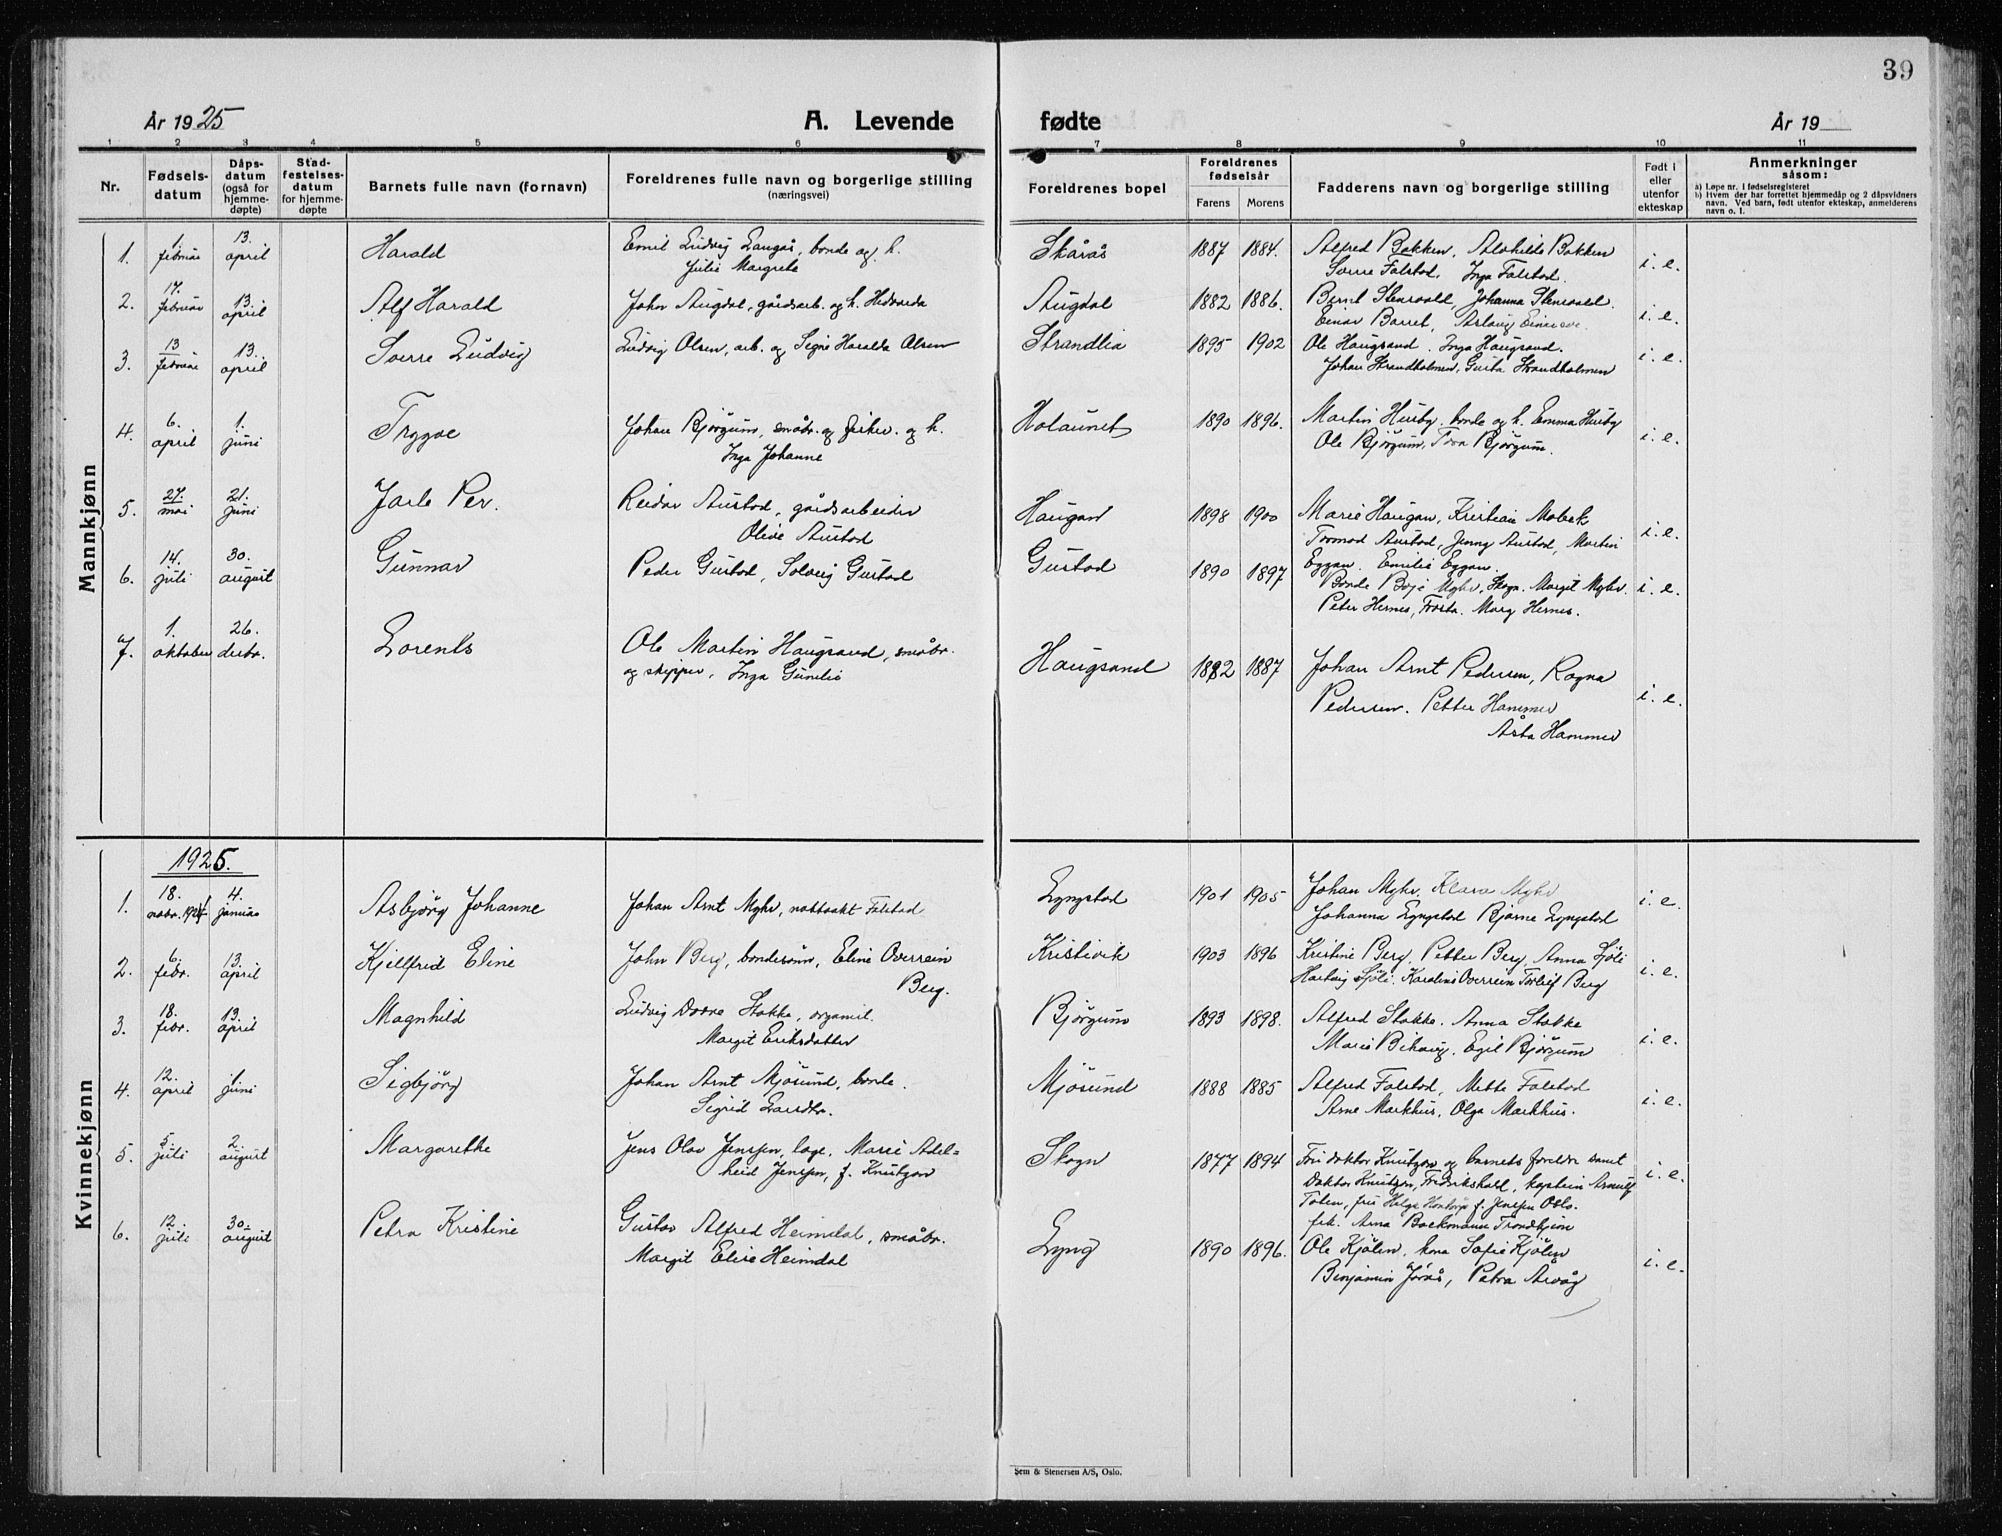 39
År 1925 A. Levende fødte År 19
1 2 3 4 5 6 7 8 9 10 11
Nr.
Fødselsdatum
Dåpsdatum (også for hjemmedøpte)
Stadfestelsesdatum for hjemmedøpte
Barnets fulle navn (fornavn)
Foreldrenes fulle navn og borgerlige stilling (næringsvei)
Foreldrenes bopel
Foreldrenes fødselsår
Farens Morens
Fadderens navn og borgerlige stilling
Født i eller utenfor ekteskap
Anmerkninger såsom:
a) Løpe nr. i fødselsregisteret
b) Hvem der har forrettet hjemmedåp og 2 dåpsvidners navn. Ved barn, født utenfor ekteskap, anmelderens navn o. l.
Mannkjønn
1. 1. februar 13. april Harald Emil Ludvig Langås, bonde og h. Skårås 1887 1884. Alfred Bakken, Alvhilde Bakken i. e.
Julie Margrete Sverre Falstad, Inga Falstad.
2. 17. februar 13. april Alf Harald John Augdal, gårdsarb. og h. Hedvarda Augdal 1882 1886. Bernt Stensvald, Johanna Stensvald. i. e.
Einar Barret, Aslaug
3. 13 februar 13. april Sverre Ludvig Ludvig Olsen, arb. og Signe Haralda Olsen Strandlia 1895 1902 Ole Haugsand. Inga Haugsand. i. e.
Johan Strandholmen, Gusta Strandholmen
4. 6. april 1. juni Trygve Johan Bjørgum, småbr. og fisker. og h. Holaunet 1890 1896. Martin Husby, bonde og h. Emma Husby i. e.
Inga Johanne Ole Bjørgum, Tora Bjørgum.
5. 27. mai 21. juni Jarle Per. Reidar Austad, gårdsarbeider Haugan 1898 1900 Marie Haugan, Kristian Mobek i. e.
Olive Austad Tormod Austad, Jenny Austad, Martin
Eggan. Emilie Eggan.
6. 14. juli 30. august Gunnar Peder Gustad, Solveig Gustad Gustad 1890 1897 Bonde Boje Myhr, Skogn. Margit Myhr. i. e.
Peter Hernes, Frosta. Mary Hernes.
7. 1. oktober 26. decbr. Lorents Ole Martin Haugsand, småbr. Haugsand 1882 1887 Johan Arnt Pedersen, Ragna i. e.
og skipper, Inga Gunelie Pedersen. Petter Hammer
Åsta Hammer
Kvinnekjønn
1925.
1. 18. novbr. 1924 4. januar Asbjørg Johanne Johan Arnt Myhr, nattvakt Falstad Lyngstad 1901 1905 Johan Myhr, Klara Myhr i. e.
Johanna Lyngstad Bjarne Lyngstad
2. 6. febr. 13. april Kjellfrid Eline John Berg, bondesønn, Eline Overrein Kristivik 1903 1896 Kristine Berg, Petter Berg, Anna Sjøli i. e.
Berg. Hartvig Sjøli. Karoline Overrein Torleif Berg
3. 18. febr. 13. april Magnhild Ludvig Dovre Stokke, organist. Bjørgum 1893 1898. Alfred Stokke. Anna Stokke i. e.
Margit Eriksdatter Marie Bihaug. Egil Bjørgum
4. 12. april 1. juni Sigbjørg Johan Arnt Mjøsund, bonde. Mjøsund 1888 1885 Alfred Falstad, Mette Falstad i. e.
Sigrid Larsdtr. Arne Markhus, Olga Markhus.
5. 5 juli 2. august Margarethe Jens Olav Jenssen, læge, Marie Adelheid Jenssen, f. Knutzon Skogn 1877 1894 Fru doktor Knutzon og barnets foreldre samt i. e.
Doktor Knutzon, Fredrikshald, kaptein Arnulf
Toten, fru Helga f. Jenssen Oslo.
frk. Arna Backmann Trondhjem
6. 12. juli 30. august Petra Kristine Gustav Alfred Heimdal, småbr. Lyng 1890 1896. Ole Kjølen, kona Sofie Kjølen i. e.
Margit Elise Heimdal Benjamin Jørås, Petra Årvåg
Sem & Stenersen A/S, Oslo.